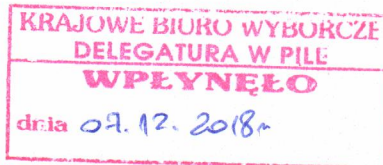 KRAJOWE BIURO WYBORCZE
DELEGATURA W PILE
WPŁYNĘŁO
dnia 07.12.2018r